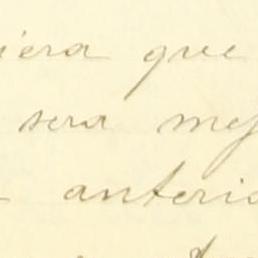 iera que
sera mej
anterio